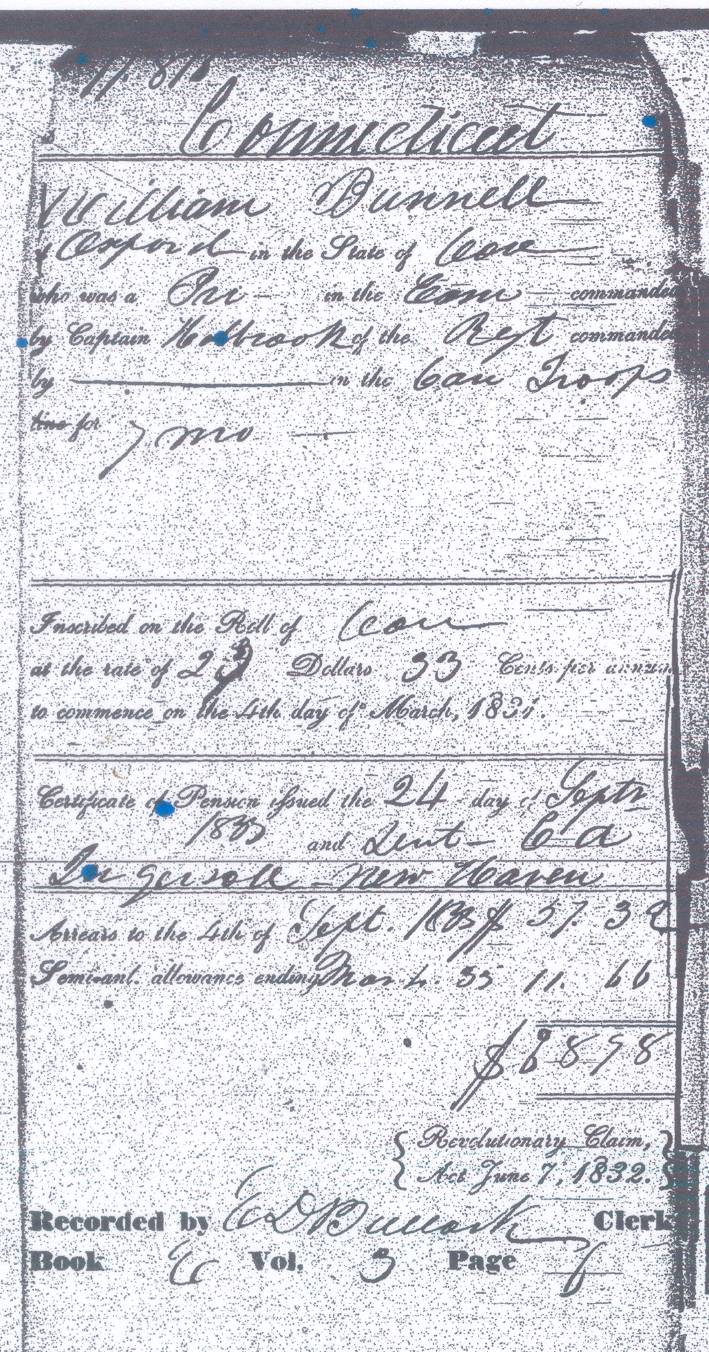 Connecticut
William Bunnell
of Oxford in the State of Con
who was a Pri - in the Com commanded
by Captain Holbrook of the Regt commanded
by in the Con Troops
line for 7 mo
Inscribed on the Roll of Con
at the rate of 23 Dollars 33 Cents per annum
to commence on the 4th day of March, 1831.
Certificate of Pension issued the 24 day of Septr
1833 and Sent C A
Ingersoll - New Haven
Arrears to the 4th of Sept. 1833 $ 57. 32
Semi-anl. allowance ending Mar 4. 11. 66
$ 6898
{ Revolutionary Claim, }
{ Act June 7, 1832. }
Recorded by Clerk
Book E Vol. Page 6